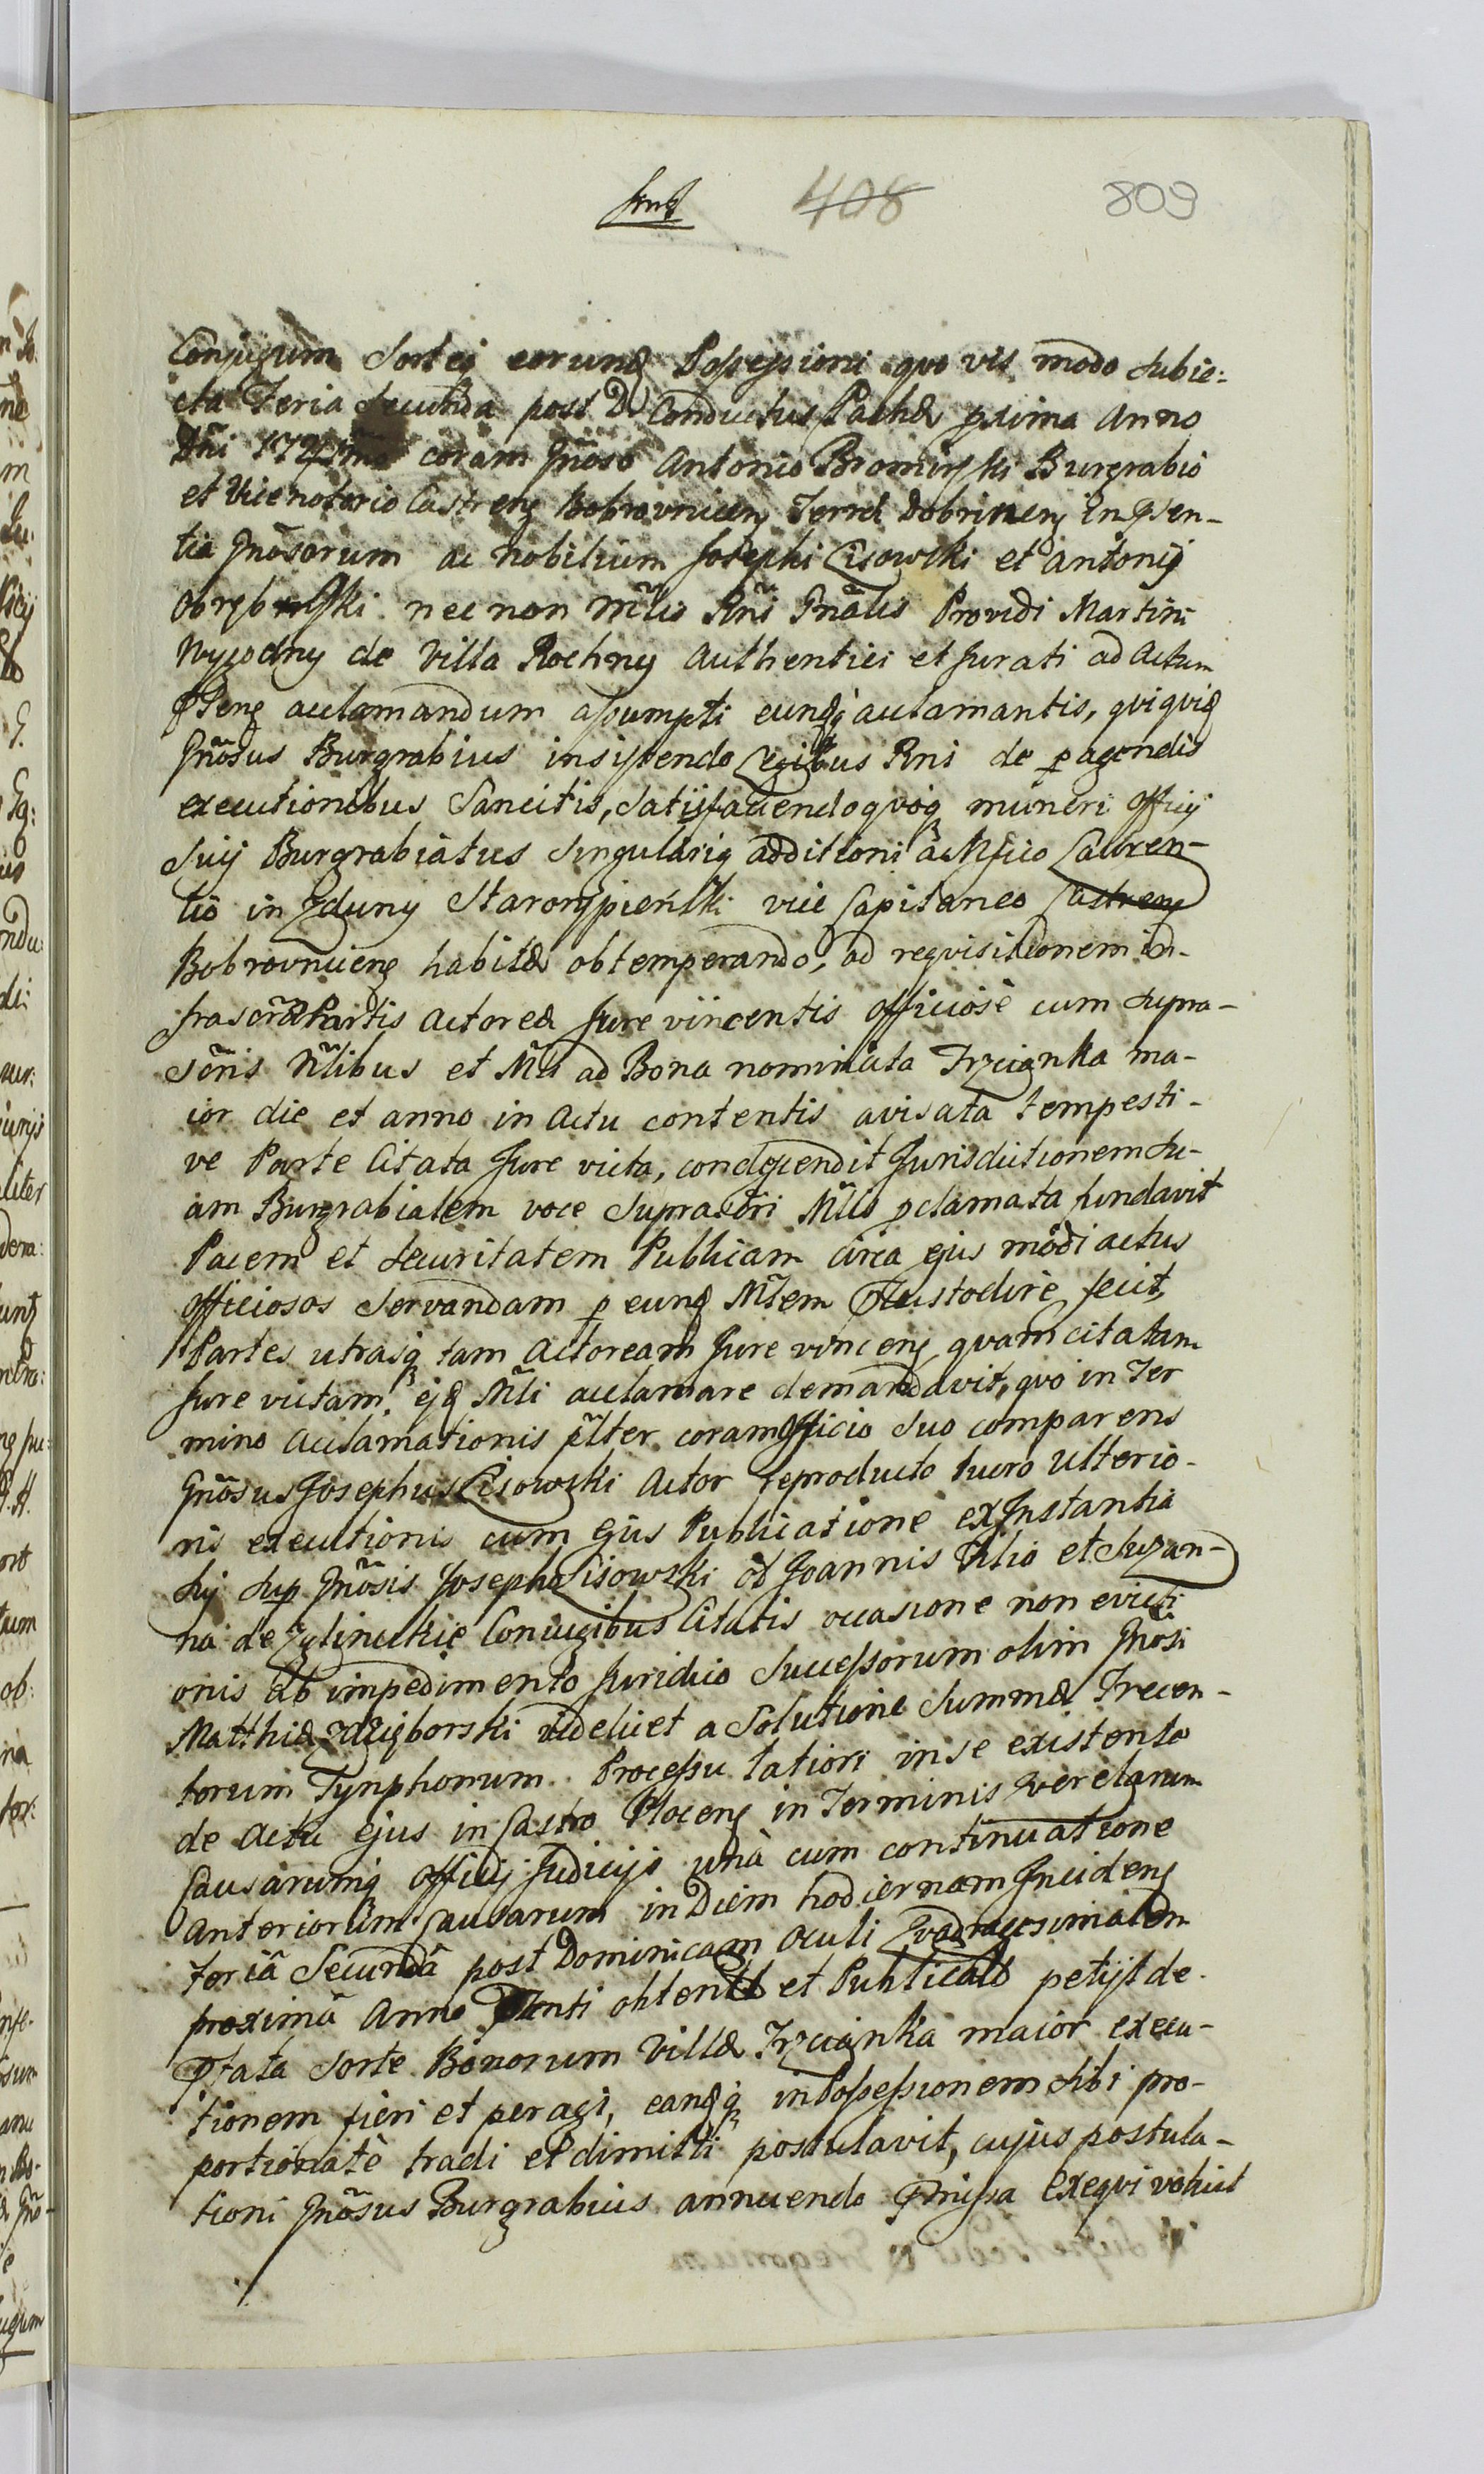 408 809
Conjugum Sortej eorund Possessioni quo vis modo Subie:
cta Feria Secunda post D Conductus Paschæ pxima Anno
Dñi coram Gñoso Antonio Bromirski Burgrabio
et Vicenotario Castreng Bobrovniceng Terræ Dobrineng in psen-
tia Gnõsorum ac Nobilium Josephi Cisowski et Antonij
nec non Mñlis Rñi Gnãlis Providi Martini
Wygodny de Villa Rochny Authentici et Jurati ad Actum
pseng acclamandum assumpti eundq acclamantis, qviqvid
Gnõsus Burgrabius insistendo Legibus Rni de p agendis
executionibus Sancitis, Satisfaciendo qvoq muneri Officij
Suij Burgrabiatus Singulariq additioni a Mfico Lauren-
tio in Zduny Starorypieński vice Capitaneo Castreng
Bobrovniceng habitæ obtemperando, ad reqvisitionem in-
frascrõ Partis Actoreæ Jure vincentis Officiose cum Supra-
scr̃is Nñlibus et Mñli ad Bona nominata Trzcianka ma-
ior die et anno in Actu contentis avisata tempesti-
ve Parte Citata Jure victa, condescendit Jurisdictionem Su-
am Burgrabialem voce Suprascr̃i Mñlis pclamata fundavit
Pacem et Securitatem Publicam circa ejus modi actus
Officiosos Servandam p eund Mñlem Custodire fecit,
Partes utrasq tam Actoream Jure vinceng quam citatam
Jure victam ejd Mñli acclamare demandavit, qvo in Ter
mino Acclamationis pñlter coram Officio Suo comparens
Gnõsus Josephus Cisowski Actor reproducto Lucro Ulterio-
ris executionis cum Ejus Publicatione ex Instantia
Sij Sup Gnõsis Josepho Cisowski Joannis Filio et Suzan-
na de Zglinickie Conjugibus Citatis occasione non evicti
onis ab impedimento Juridico Successorum olim Gnõsi
Matthiæ videlicet a Solutione Summæ Trecen-
torum Tynphonum. Processu latiori in se existente
de Actu Ejus in Castro Ploceng in Terminis Qverelarum
Causarumq Officij Judicijs unà cum continuatione
Anteriorum Causarum in Diem hodiernam Incideng
feriâ Secundâ post Dominicam Oculi Qvadragesimalem
proximâ Anno obtento et Publicato petijt de
pfata Sorte Bonorum Villæ Trzcianka maior execu-
tionem fieri et peragi, eandq in Possessionem Sibi pro-
portionatè tradi et dimitti postulavit, cujus postula-
tioni Gnõsus Burgrabius annuendo pmissa Exeqvi voluit